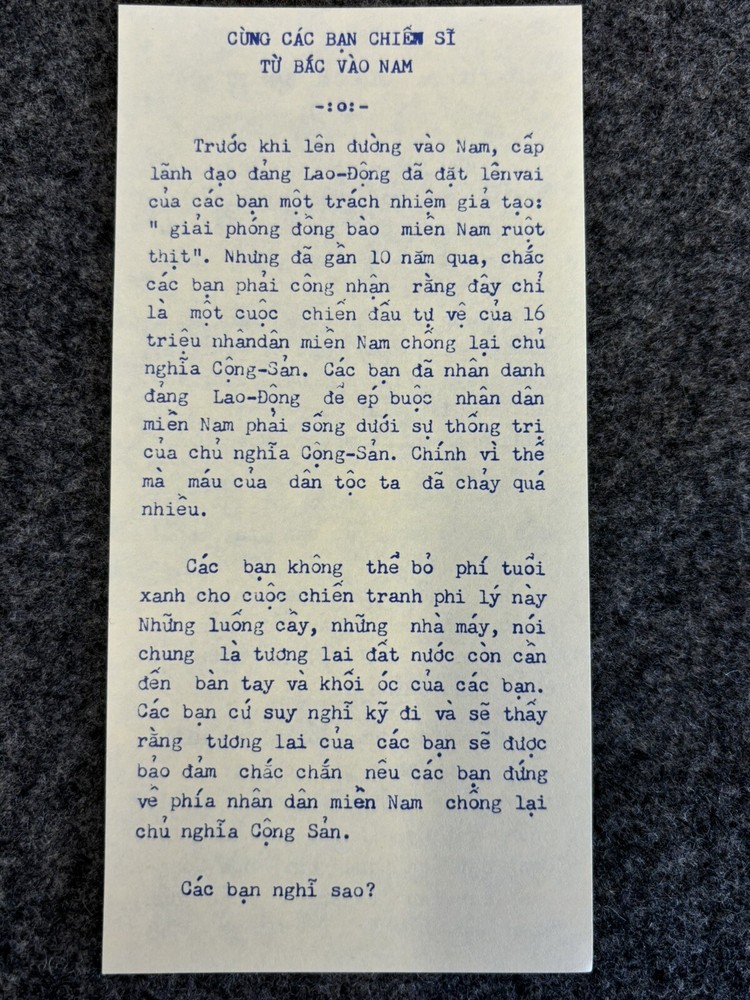 CÙNG CÁC BẠN CHIẾN SĨ
TỪ BẮC VÀO NAM
-:o:-
Trước khi lên đường vào Nam, cấp
lãnh đạo đảng Lao-Động đã đặt lênvai
của các bạn một trách nhiệm giả tạo:
" giải phóng đồng bào miền Nam ruột
thịt". Nhưng đã gần 10 năm qua, chắc
các bạn phải công nhận rằng đây chỉ
là một cuộc chiến đấu tự vệ của 16
triệu nhândân miền Nam chống lại chủ
nghĩa Cộng-Sản. Các bạn đã nhân danh
đảng Lao-Động để ép buộc nhân dân
miền Nam phải sống dưới sự thống trị
của chủ nghĩa Cộng-Sản. Chính vì thế
mà máu của dân tộc ta đã chảy quá
nhiều.
Các bạn không thể bỏ phí tuổi
xanh cho cuộc chiến tranh phi lý này
Những luống cầy, những nhà máy, nói
chung là tương lai đất nước còn cần
đến bàn tay và khối óc của các bạn.
Các bạn cứ suy nghĩ kỹ đi và sẽ thấy
rằng tương lai của các bạn sẽ được
bảo đảm chắc chắn nếu các bạn đứng
về phía nhân dân miền Nam chống lại
chủ nghĩa Cộng Sản.
Các bạn nghĩ sao?